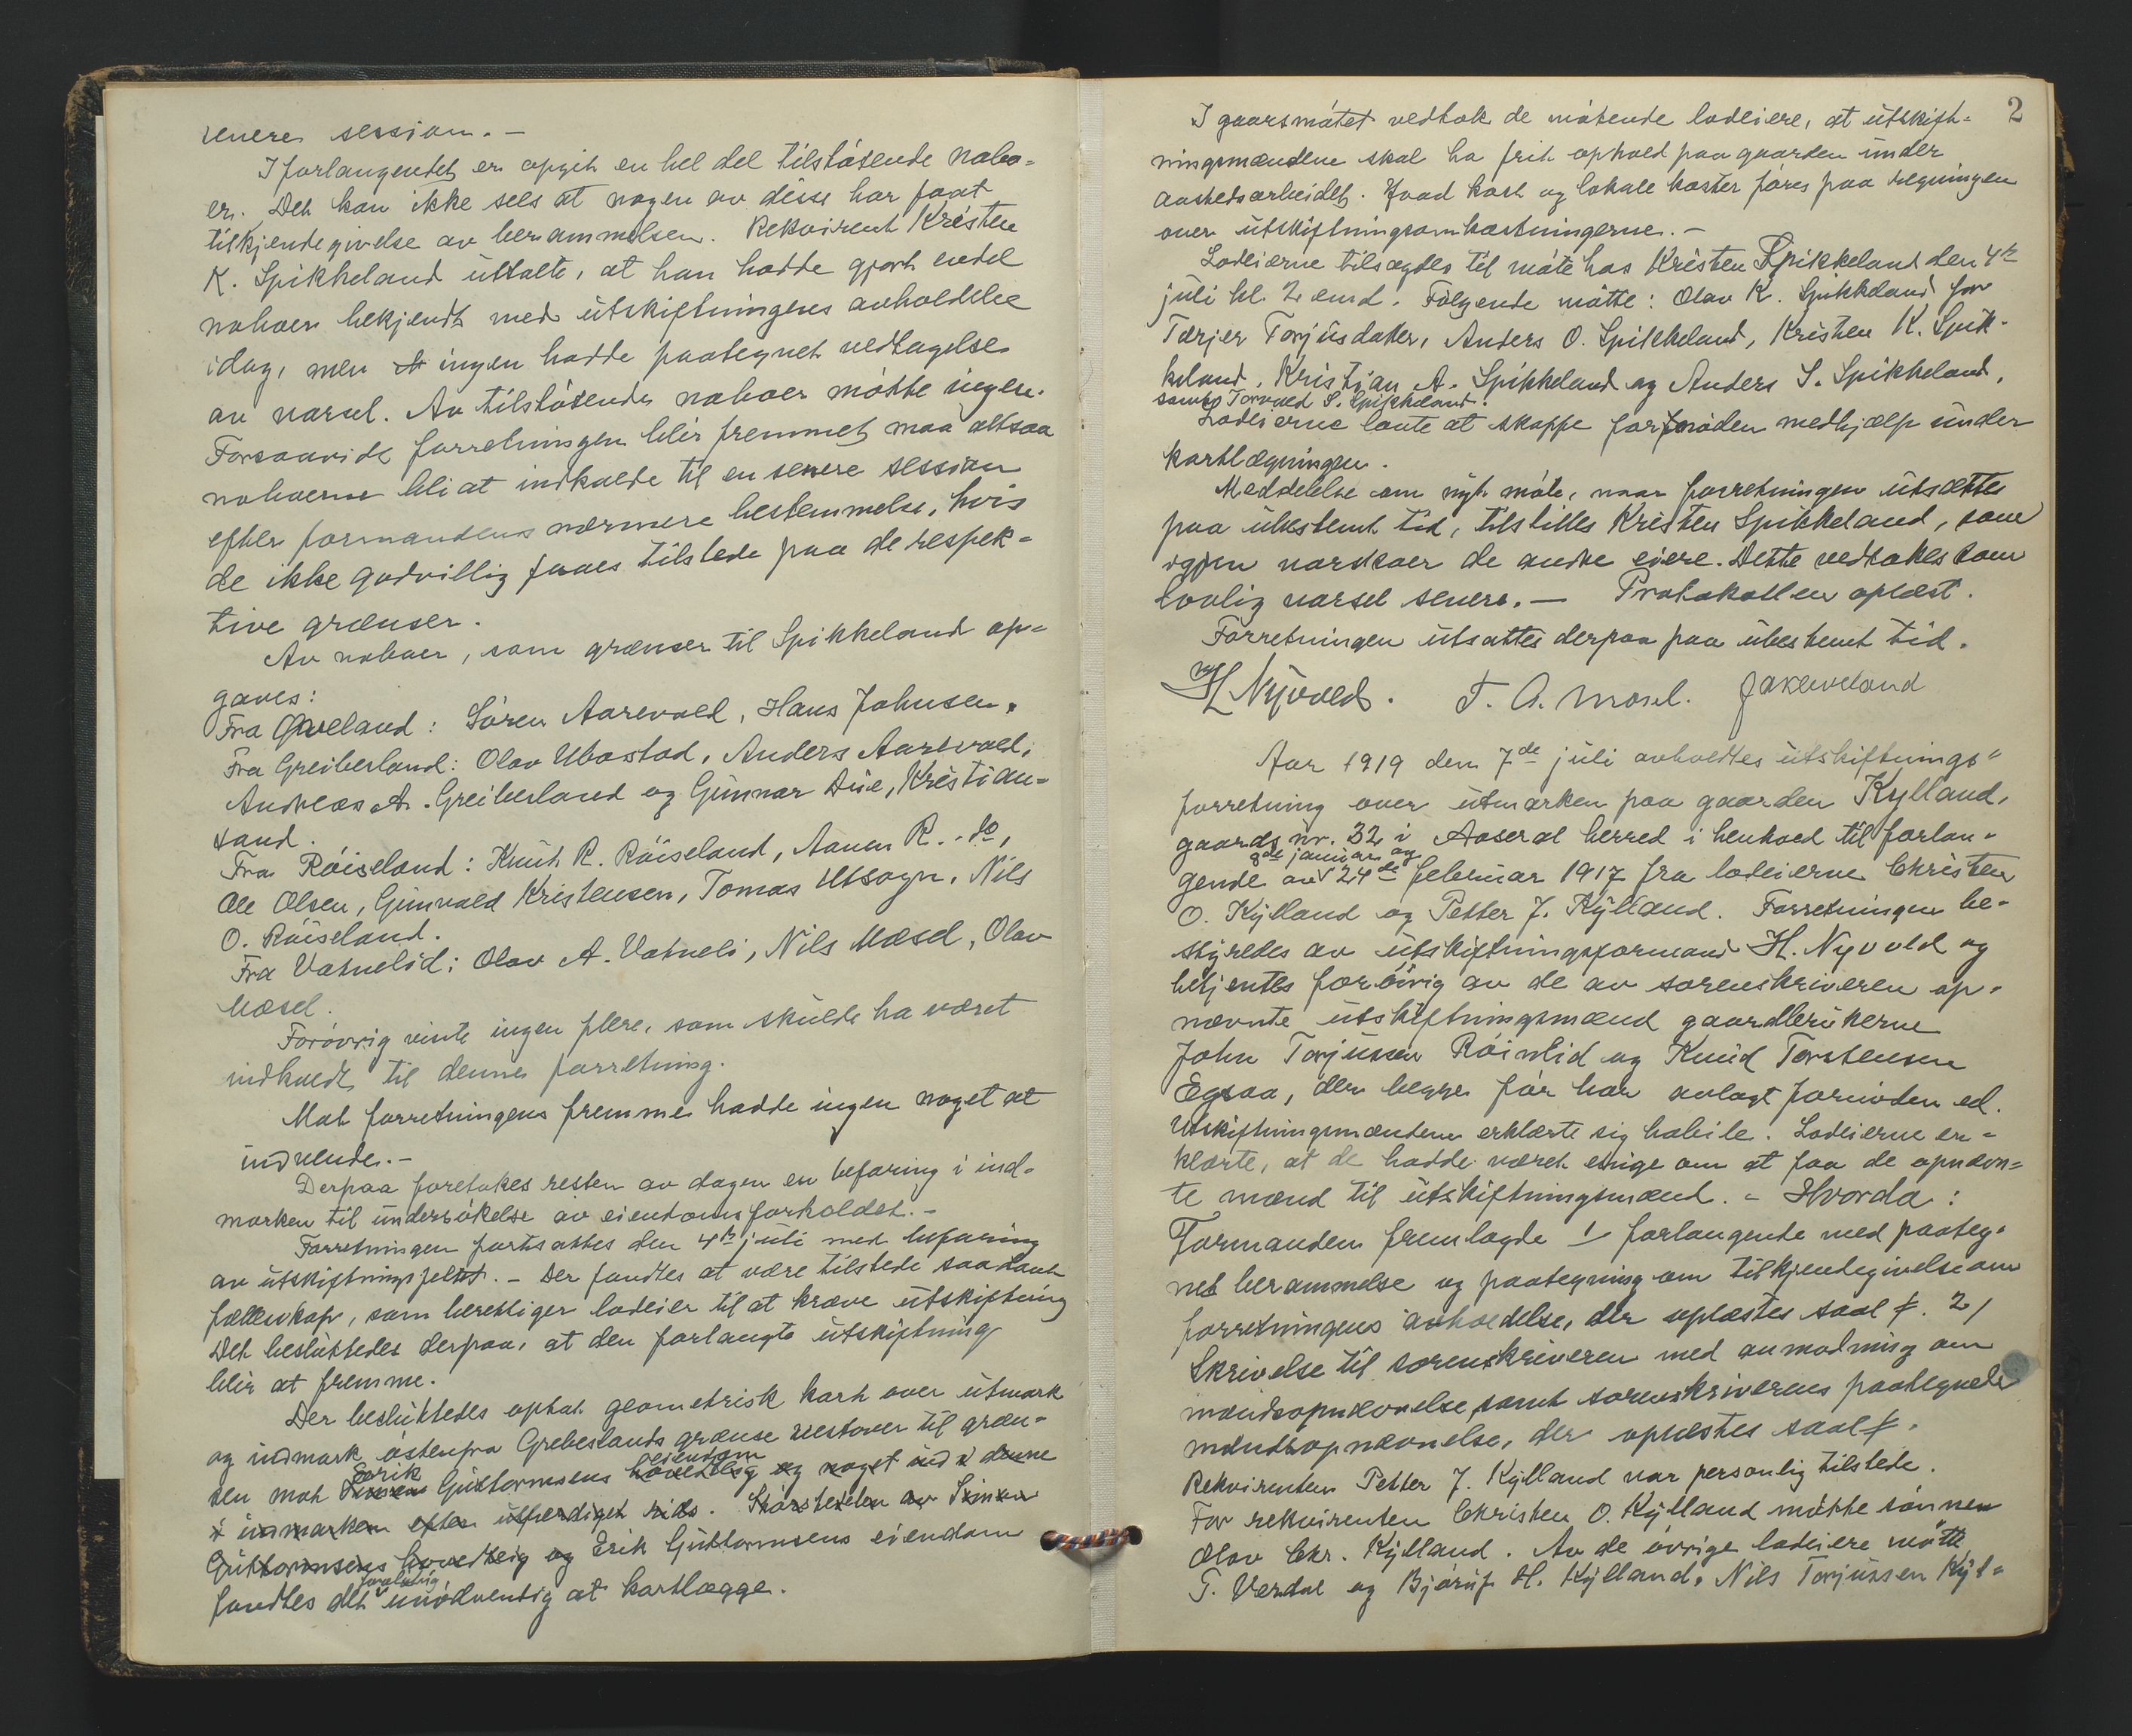 senere session. –
I forlangendet er opgit en hel del tilstøtende nabo-
er. Det kan ikke sees at nogen av disse har faat
tilkjendegivelse av berammelsen. Rekvirent Kristen
K. Spikkeland uttalte, at han hadde gjort endel
naboer bekjendt med utskiftningens avholdelse
idag, men at ingen hadde paategnet vedtagelse
av varsel. Av tilstøtende naboer møtte ingen.
Forsaavidt forretningen blir fremmet maa altsaa
naboerne bli at indkalde til en senere session
efter formandens nærmere bestemmelse, hvis
de ikke godvillig faaes tilstede paa de respek-
tive grænser.
Av naboer, som grænser til Spikkeland op-
gaves:
Fra Qveland: Søren Aarevold, Hans Johnsen.
Fra Greibesland: Olav Ubostad, Anders Aarevold,
Andreas A. Greibesland og Gunnar Due, Kristian-
sand.
Fra Røiseland: Knut R. Røiseland, Aanen R. do,
Ole Olsen, Gunvald Kristensen, Tomas Utsogn, Nils
O. Røiseland.
Fra Vatnelid: Olav A. Vatneli, Nils Mæsel, Olav
Mæsel.
Forøvrig visste ingen flere, som skulde ha været
indkaldt til denne forretning.
Mot forretningens fremme hadde ingen noget at
indvende. –
Derpaa foretokes resten av dagen en befaring i ind-
marken til undersøkelse av eiendomsforholdet. –
Forretningen fortsattes den 4de juli med befaring
av utskiftningsfeltet. – Der fandtes at være tilstede saadant
fælleskap, som berettiger lodeier til at kræve utskiftning
Det besluttedes derpaa, at den forlangte utskiftning
blir at fremme.
Der besluttedes optat geometrisk kart over utmark
og indmark østenfra Grebeslands grænse vestover til græn-
sen mot Erik Guttormsens eiendom hovedteig og noget ind i denne
i indmarken efter utferdiget rids. Størstedelen av Simen
Guttormsens hovedteig og Erik Guttormsens eiendom
fandtes det foreløbig unødvendig at kartlægge.
2
I gaarsmøtet vedtok de møtende lodeiere, at utskift-
ningsmændene skal ha frit ophold paa gaarden under
aastedsarbeidet. Hvad kost og lokale koster føres paa regningen
over utskiftningsomkostningerne. –
Lodeierne tilsagdes til møte hos Kristen Spikkeland den 4de
juli kl. 2 emd. Følgende møtte: Olav K. Spikkeland for
Tarjer Torjusdatter, Anders O. Spikkeland, Kristen K. Spik-
keland, Kristian A. Spikkeland og Anders S. Spikkeland,
samt Torvald S. Spikkeland.
Lodeierne lovte at skaffe fornøden medhjælp under
kartlægningen.
Meddelelse om nyt møte, naar forretningen utsættes
paa ubestemt tid, tilstilles Kristen Spikkeland, som
igjen varskoer de andre eiere. Dette vedtokes som
lovlig varsel senere. – Protokollen oplæst.
Forretningen utsattes derpaa paa ubestemt tid.
H Nyvold. T. A. Mosel. J Akerveland
Aar 1919 den 7de juli avholdtes utskiftnings-
forretning over utmarken paa gaarden Kylland,
gaards nr. 32 i Aaseral herred i henhold til forlan-
gende av 8de januar og 24de februar 1917 fra lodeierne Christen
O. Kylland og Petter J. Kylland. Forretningen be-
styredes av utskiftningsformand H. Nyvold og
betjentes forøvrig av de av sorenskriveren op-
nævnte utskiftningsmænd gaardbrukerne
John Torjussen Røinlid og Knud Torstensen
Egsaa, der begge før har avlagt fornøden ed.
Utskiftningsmændene erklærte sig habile. Lodeierne er-
klærte, at de hadde været enige om at faa de opnævn-
te mænd til utskiftningsmænd. – Hvorda:
Formanden fremlagde 1/ forlangende med paateg-
net berammelse og paategning om tilkjendegivelse om
forretningens avholdelse, der oplæstes saal. 2/
Skrivelse til sorenskriveren med anmodning om
mændsopnævnelse samt sorenskriverens paategnede
mændsopnævnelse, der oplæstes saal.
Rekvirenten Petter J. Kylland var personlig tilstede.
For rekvirenten Christen O. Kylland møtte sønnen
Olav Chr. Kylland. Av de øvrige lodeiere møtte
T. Verdal og Bjørulf H. Kylland, Nils Torjussen Kyl-